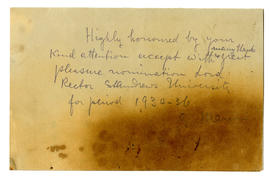 Highly honoured by your
kind attention accept with great
pleasure nomination Lord
Rector St Andrews University
for period 1934-36